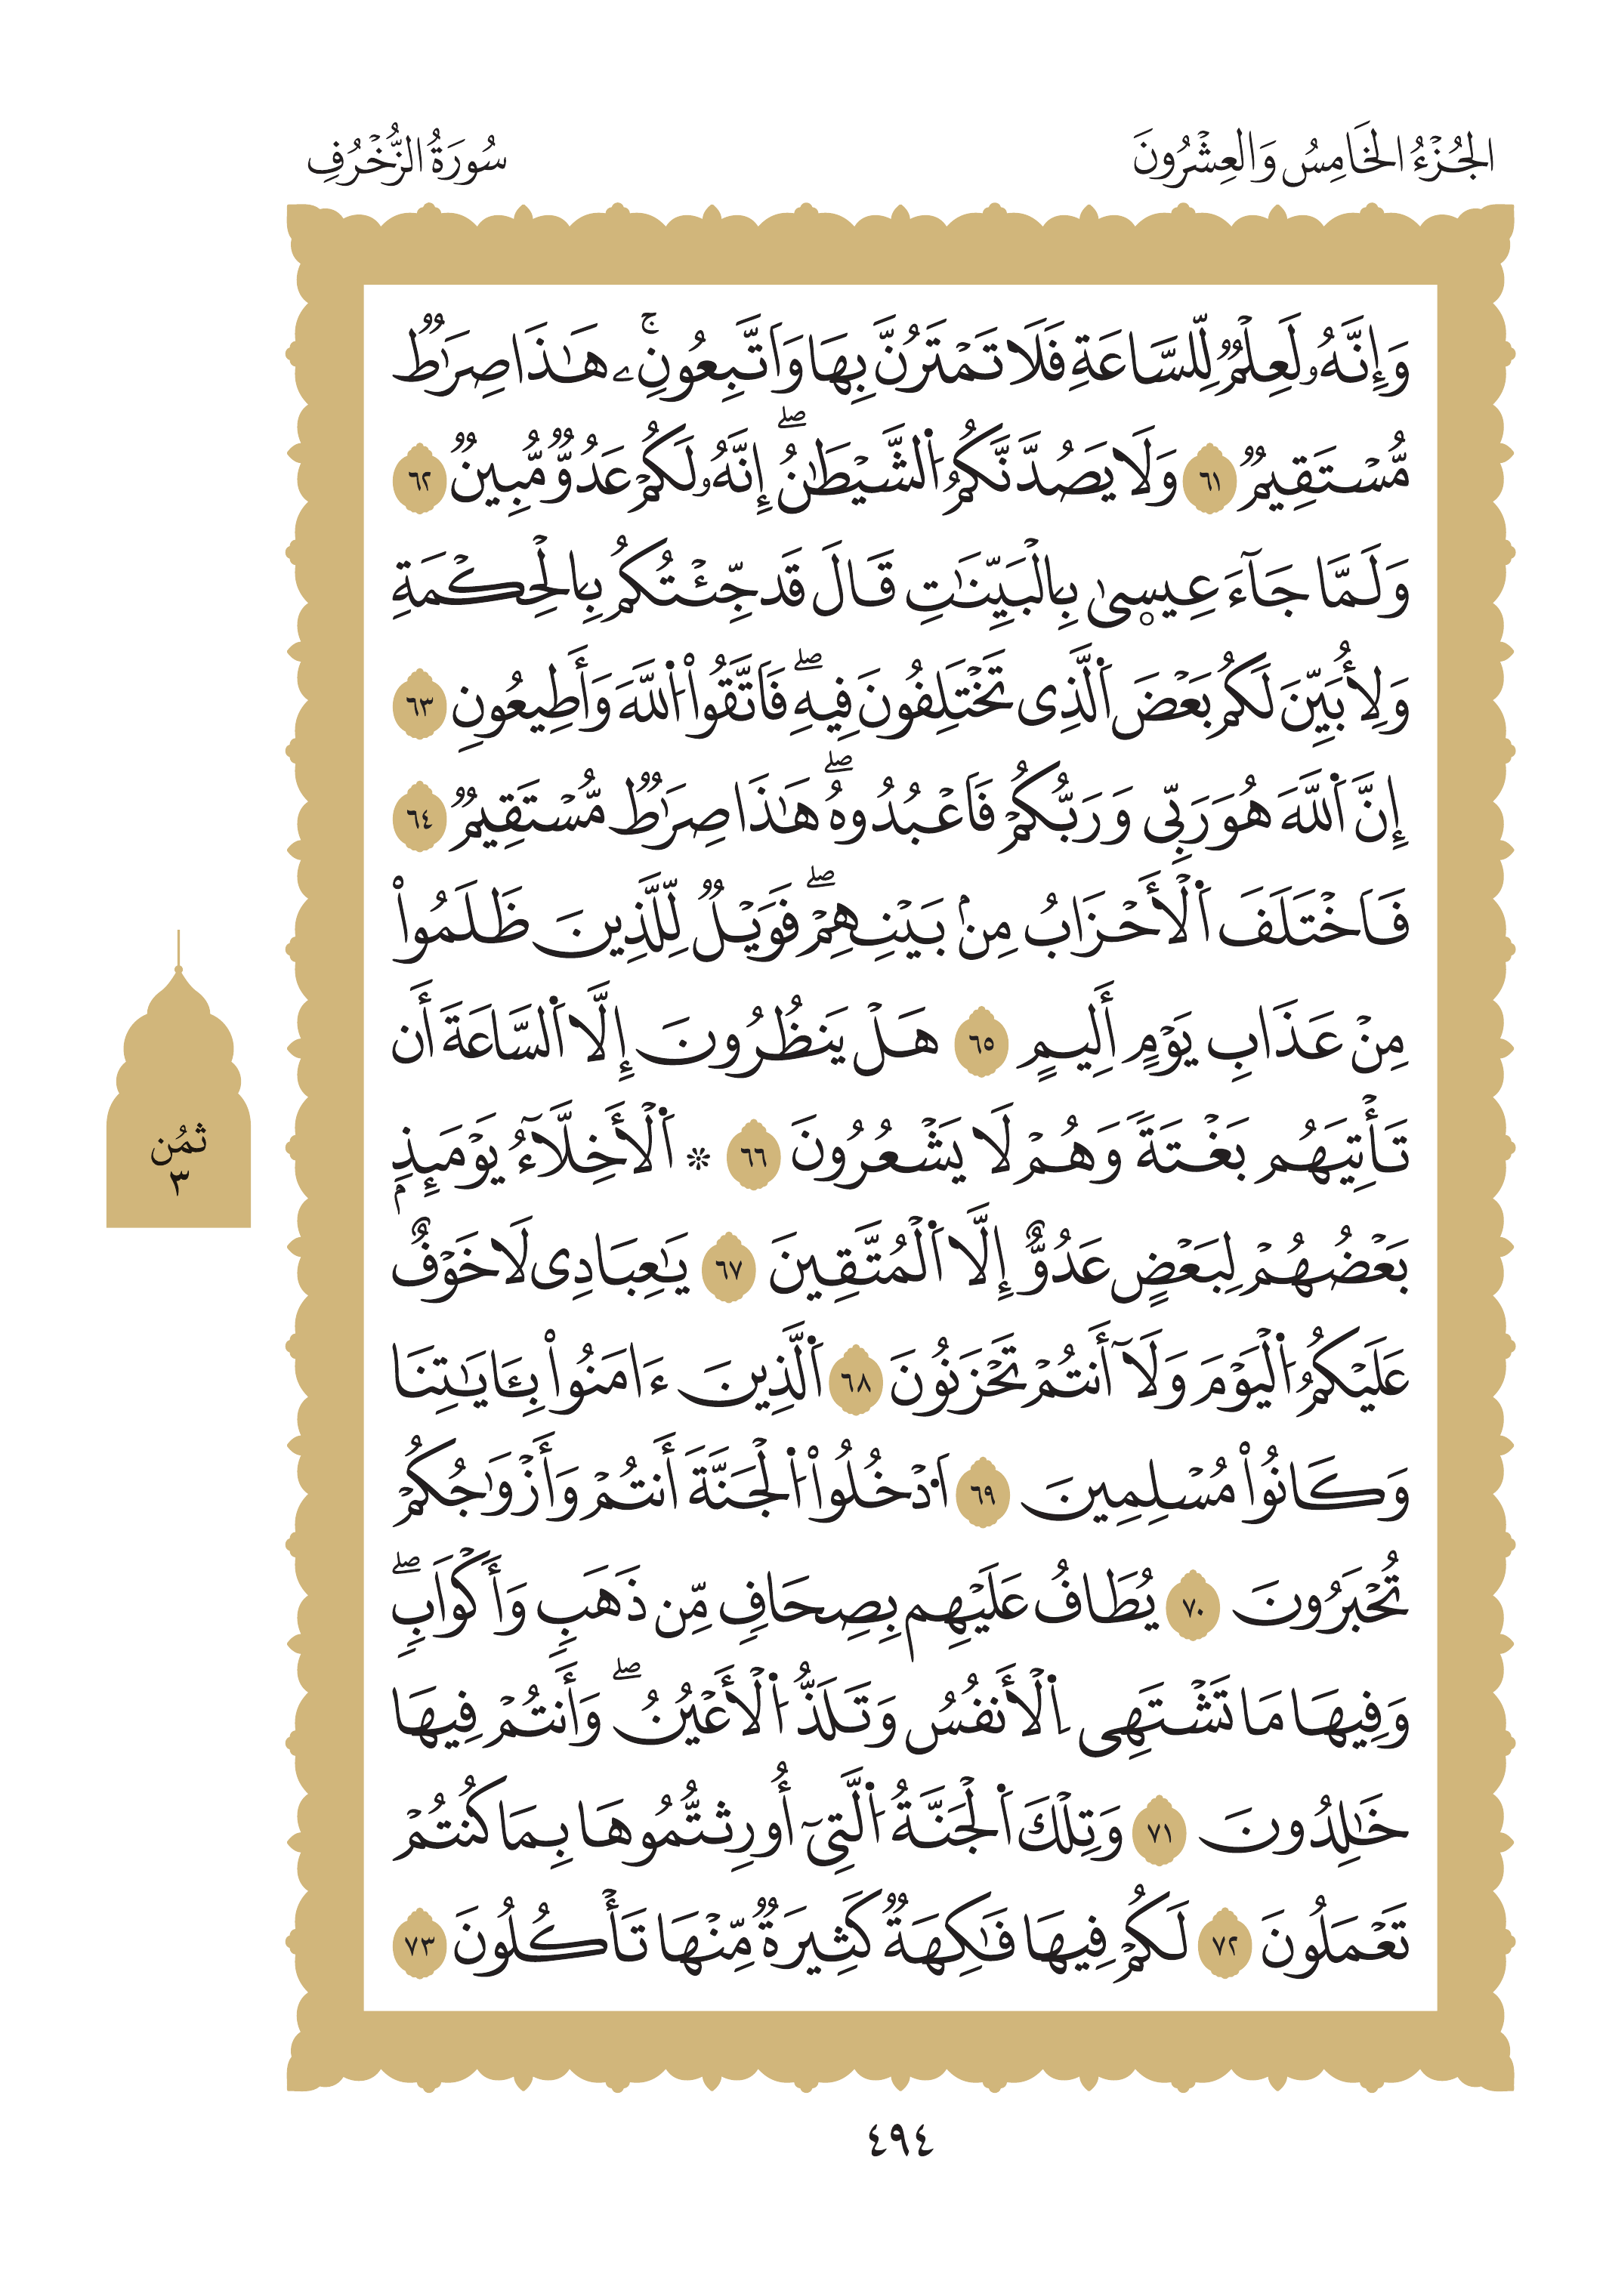 الجُزْءُ الخَامِسُ وَالعِشْرُونَ
سُورَةُ الزُّخْرُفِ
وَإِنَّهُۥ لَعِلْمٌ لِّلسَّاعَةِ فَلَا تَمْتَرُنَّ بِهَا وَاَتَّبِعُونِۦۚ هَٰذَا صِرَٰطٌ
مُّسْتَقِيمٌ ٦١ وَلَا يَصُدَّنَّكُمُ اُ۬لشَّيْطَٰنُۖ إِنَّهُۥ لَكُمْ عَدُوٌّ مُّبِينٌ ٦٢
وَلَمَّا جَآءَ عِيسۭيٰ بِالْبَيِّنَٰتِ قَالَ قَد جِّئْتُكُم بِالْحِكْمَةِ
وَلِأُبَيِّنَ لَكُم بَعْضَ اَ۬لَّذِي تَخْتَلِفُونَ فِيهِۖ فَاَتَّقُواْ اُ۬للَّهَ وَأَطِيعُونِ ٦٣
إِنَّ اَ۬للَّهَ هُوَ رَبِّي وَرَبُّكُمْ فَاَعْبُدُوهُۖ هَٰذَا صِرَٰطٌ مُّسْتَقِيمٌ ٦٤
فَاَخْتَلَفَ اَ۬لْأَحْزَابُ مِنۢ بَيْنِهِمْۖ فَوَيْلٌ لِّلَّذِينَ ظَلَمُواْ
مِنْ عَذَابِ يَوْمٍ أَلِيمٍ ٦٥ هَلْ يَنظُرُونَ إِلَّا اَ۬لسَّاعَةَ أَن
تَأْتِيَهُم بَغْتَةً وَهُمْ لَا يَشْعُرُونَ ٦٦ ۞ اَ۬لْأَخِلَّآءُ يَوْمَئِذِۢ
بَعْضُهُمْ لِبَعْضٍ عَدُوٌّ إِلَّا اَ۬لْمُتَّقِينَ ٦٧ يَٰعِبَادِي لَا خَوْفٌ
عَلَيْكُمُ اُ۬لْيَوْمَ وَلَآ أَنتُمْ تَحْزَنُونَ ٦٨ اَ۬لَّذِينَ ءَامَنُواْ بِـَٔايَٰتِنَا
وَكَانُواْ مُسْلِمِينَ ٦٩ اَ۟دْخُلُواْ اُ۬لْجَنَّةَ أَنتُمْ وَأَزْوَٰجُكُمْ
تُحْبَرُونَ ٧٠ يُطَافُ عَلَيْهِم بِصِحَافٍ مِّن ذَهَبٍ وَأَكْوَابٍۖ
وَفِيهَا مَا تَشْتَهِي اِ۬لْأَنفُسُ وَتَلَذُّ اُ۬لْأَعْيُنُۖ وَأَنتُمْ فِيهَا
خَٰلِدُونَ ٧١ وَتِلْكَ اَ۬لْجَنَّةُ اُ۬لَّتِيٓ أُورِثتُّمُوهَا بِمَا كُنتُمْ
تَعْمَلُونَ ٧٢ لَكُمْ فِيهَا فَٰكِهَةٌ كَثِيرَةٌ مِّنْهَا تَأْكُلُونَ ٧٣
ثمُن
٣
٤٩٤